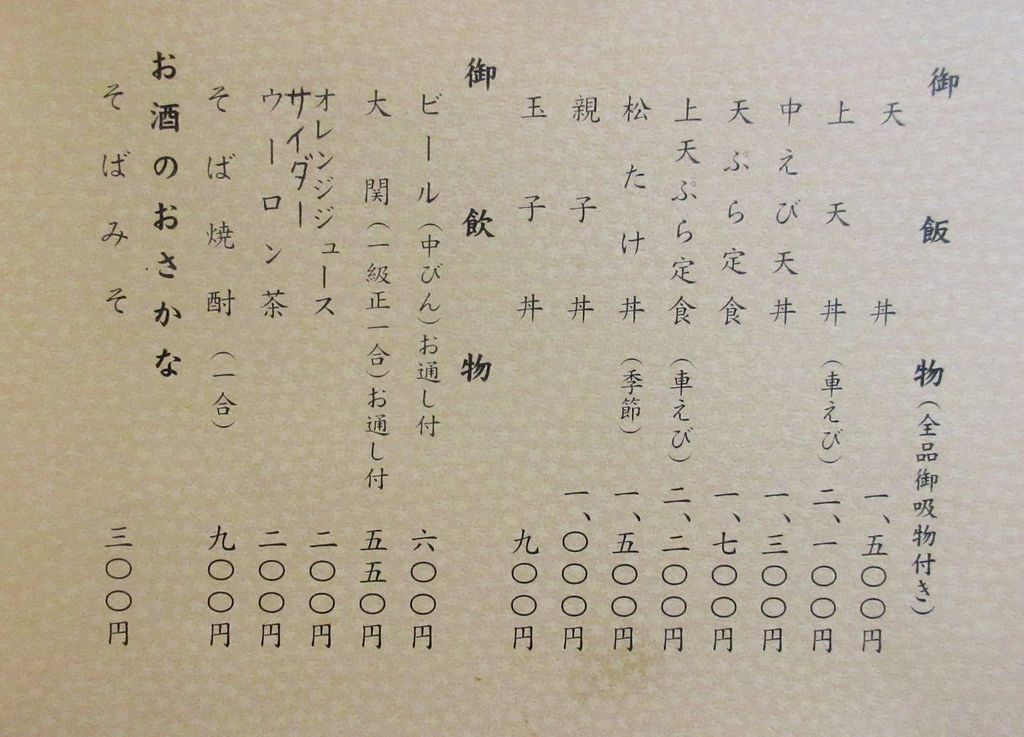 御飯物（全品御吸物付き）
天丼 一、五〇〇円
上天丼（車えび） 二、一〇〇円
中えび天丼 一、三〇〇円
天ぷら定食 一、七〇〇円
上天ぷら定食（車えび） 二、二〇〇円
松たけ丼（季節） 一、五〇〇円
親子丼 一、〇〇〇円
玉子丼 九〇〇円
御飲物
ビール（中びん）お通し付 六〇〇円
大関（一級正一合）お通し付 五五〇円
オレンジジュース 二〇〇円
サイダー
ウーロン茶 二〇〇円
そば焼酎（一合） 九〇〇円
お酒のおさかな
そばみそ 三〇〇円